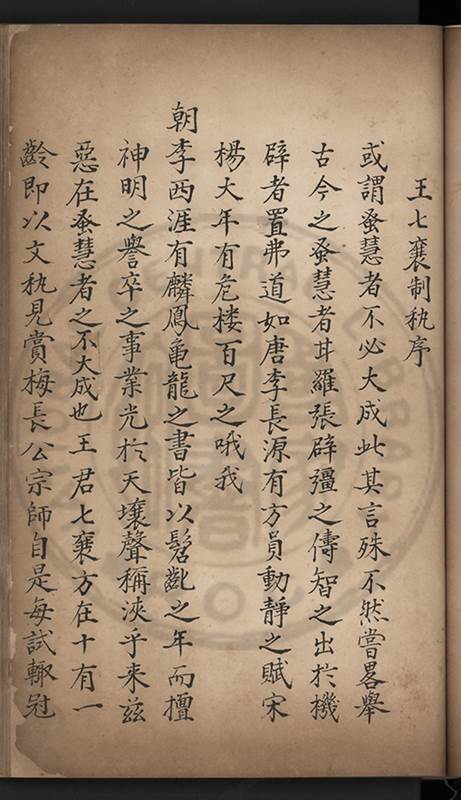 王七襄制秇序
或謂蚤慧者不必大成此其言殊不然嘗畧舉
古今之蚤慧者甘羅張辟彊之儔智之出於機
辟者置弗道如唐李長源有方員動靜之賦宋
楊大年有危楼百尺之哦我
朝李西涯有麟鳳龜龍之書皆以髫齔之年而擅
神明之譽卒之事業光於天壤聲稱浹乎来茲
惡在蚤慧者之不大成也王君七襄方在十有一
齡即以文秇見賞梅長公宗師自是每試輙冠